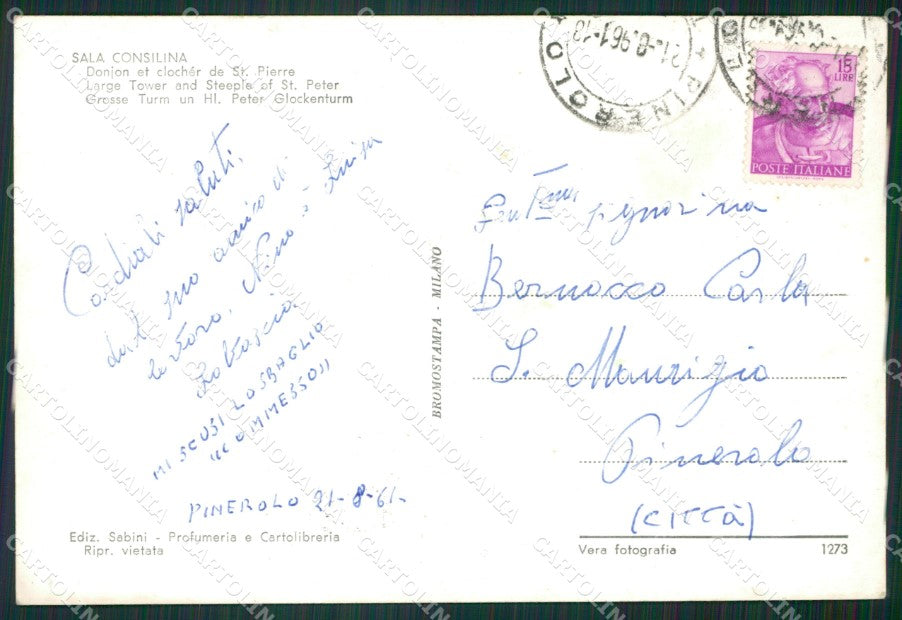 SALA CONSILINA
Donjon et clochér de St. Pierre
Large Tower and Steeple of St. Peter
Grosse Turm un Hl. Peter Glockenturm
Cordiali saluti
dal suo amico di
Nino - Luisa
MI SCUSI LO SBAGLIO
"COMMESSO"
PINEROLO 21-8-61-
Ediz. Sabini - Profumeria e Cartolibreria
Ripr. vietata
BROMOSTAMPA - MILANO
PINEROLO
15
LIRE
POSTE ITALIANE
signorina
Bernocco Carla
S. Maurizio
Pinerolo
(CITTÀ)
Vera fotografia
1273
CARTOLINOMANIA